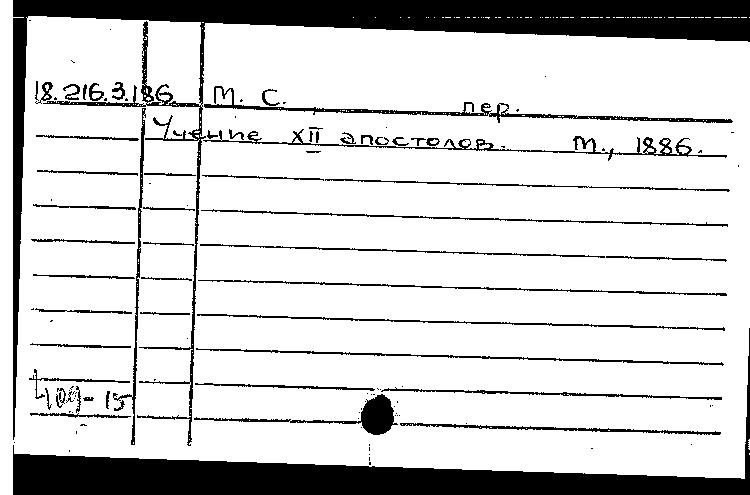 18.216.3.186 М. С. пер.
Учение XII апостолов. М., 1886.